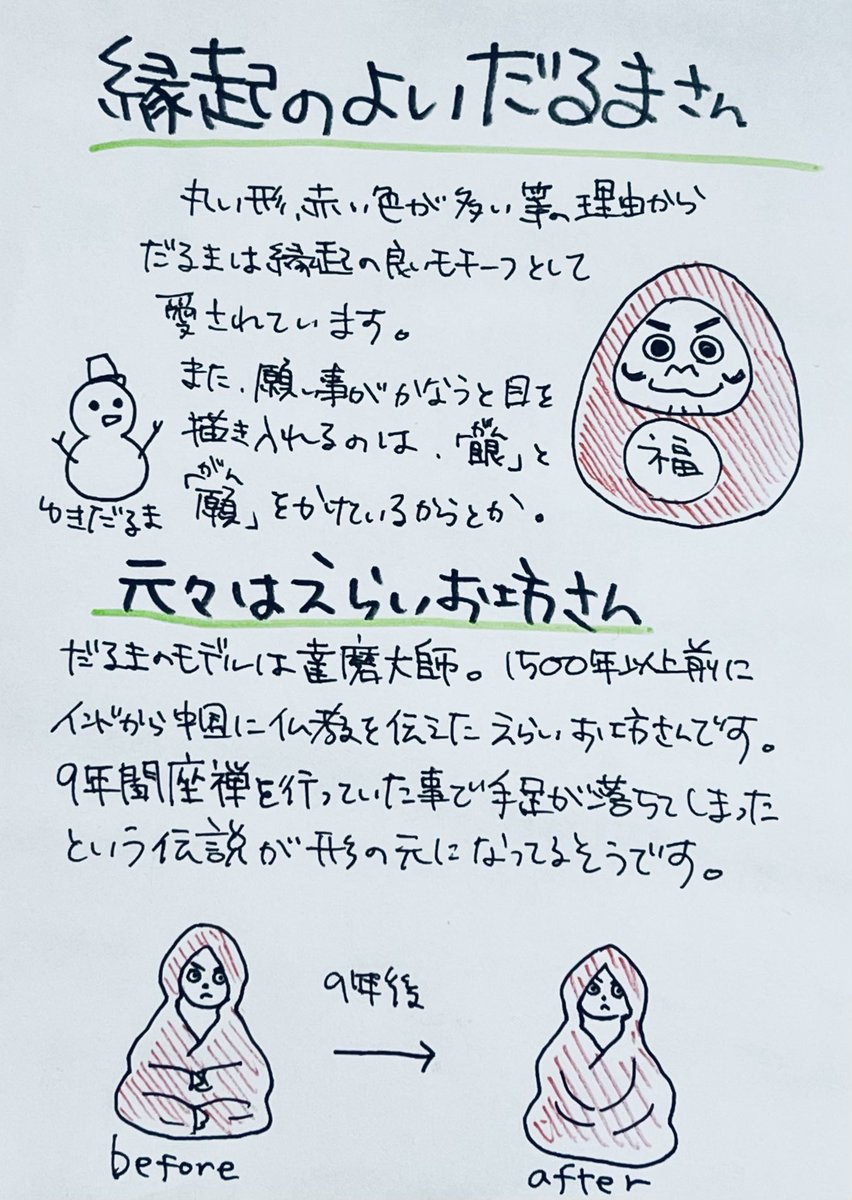 縁起のよいだるまさん
丸い形、赤い色が多い等の理由から
だるまは縁起の良いモチーフとして
愛されています。
また、願い事がかなうと目を
描き入れるのは、「眼」と
がん
「願」をかけているからとか。
がん
福
ゆきだるま
元々はえらいお坊さん
だるまのモデルは達磨大師。1500年以上前に
インドから中国に仏教を伝えたえらいお坊さんです。
9年間座禅を行っていた事で手足が落ちてしまった
という伝説が形の元になってるそうです。
9年後
before
after